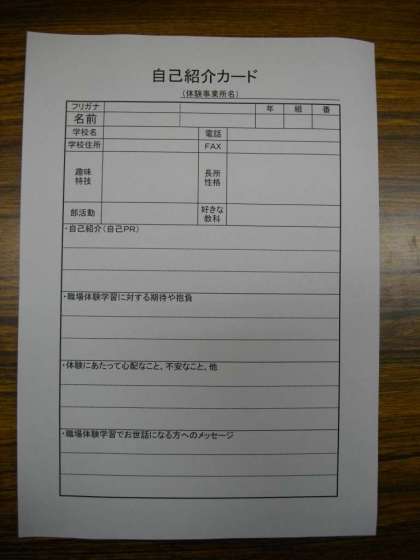 自己紹介カード
(体験事業所名)
フリガナ 年 組 番
名前
学校名 電話
学校住所 FAX
趣味 特技 長所 性格
部活動 好きな 教科
・自己紹介(自己PR)
・職場体験学習に対する期待や抱負
・体験にあたって心配なこと、不安なこと、他
・職場体験学習でお世話になる方へのメッセージ